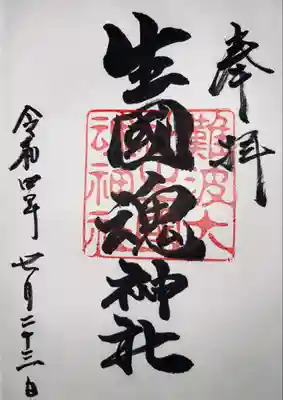 奉拝
生國魂神社
難波大
魂神社
令和四年 月二十三日